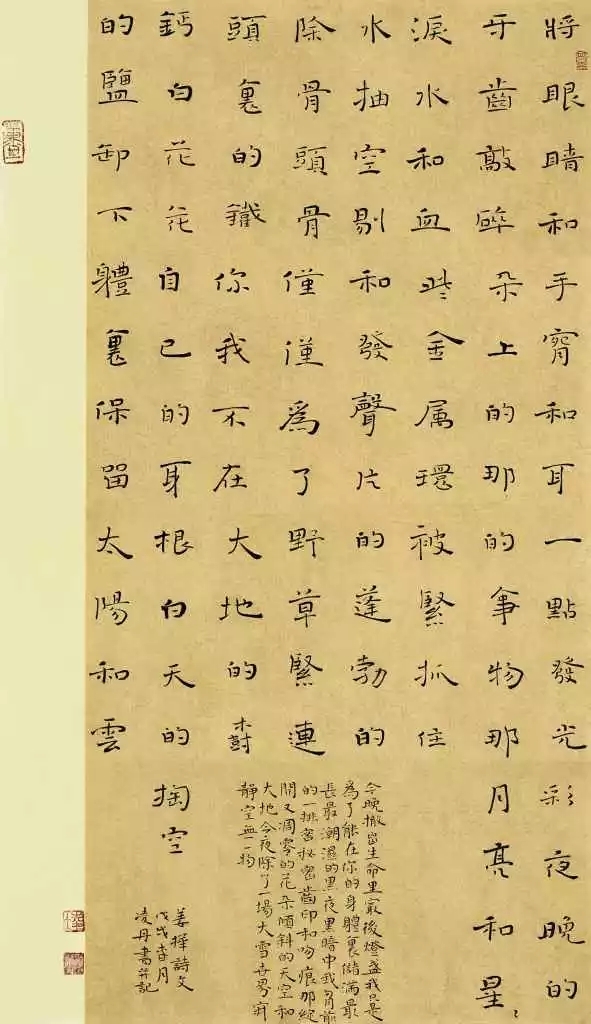 將眼睛和手和耳一點發光彩夜晚的
牙齒敲碎朵上的那的事物那月亮和星
淚水和血些金属環被緊抓住
水抽空剔和發聲片的蓬勃的
除骨頭骨僅僅為了野草緊連
頭裏的鐵你我不在大地的樹
鈣白花花自己的耳根白天的掏空
的鹽卸下軆裏保留太陽和雲
今晚撤留生命里最後燈盞我只是
為了能在你的身體裏儲滿最
長最潮濕的黑夜黑暗中我肩前
的一排秘密齒印和吻痕那綻
開又凋零的花朵傾斜的天空和
大地今夜除了一場大雪世界寂
靜空無一物
姜樺詩文
戊戌杏月
凌丹書并記